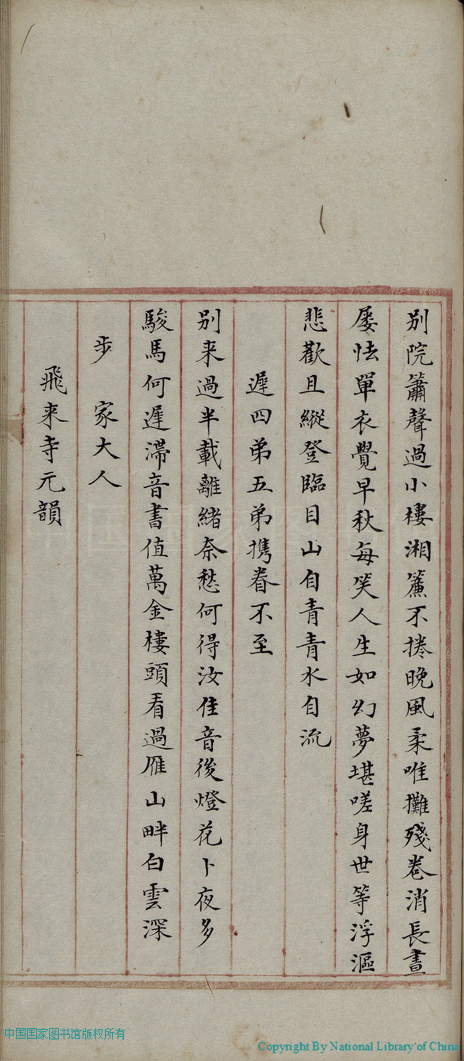 別院簫聲過小樓湘簾不捲晚風柔唯攤殘卷消長晝
屡怯單衣覺早秋每笑人生如幻夢堪嗟身世等浮漚
悲歡且縱登臨目山自青青水自流
遲四弟五弟攜眷不至
別来過半載離緒奈愁何得汝佳音後燈花卜夜多
駿馬何遲滯音書值萬金樓頭看過雁山畔白雲深
步 家大人
飛来寺元韻
中国国家图书馆版权所有
Copyright By National Library of China